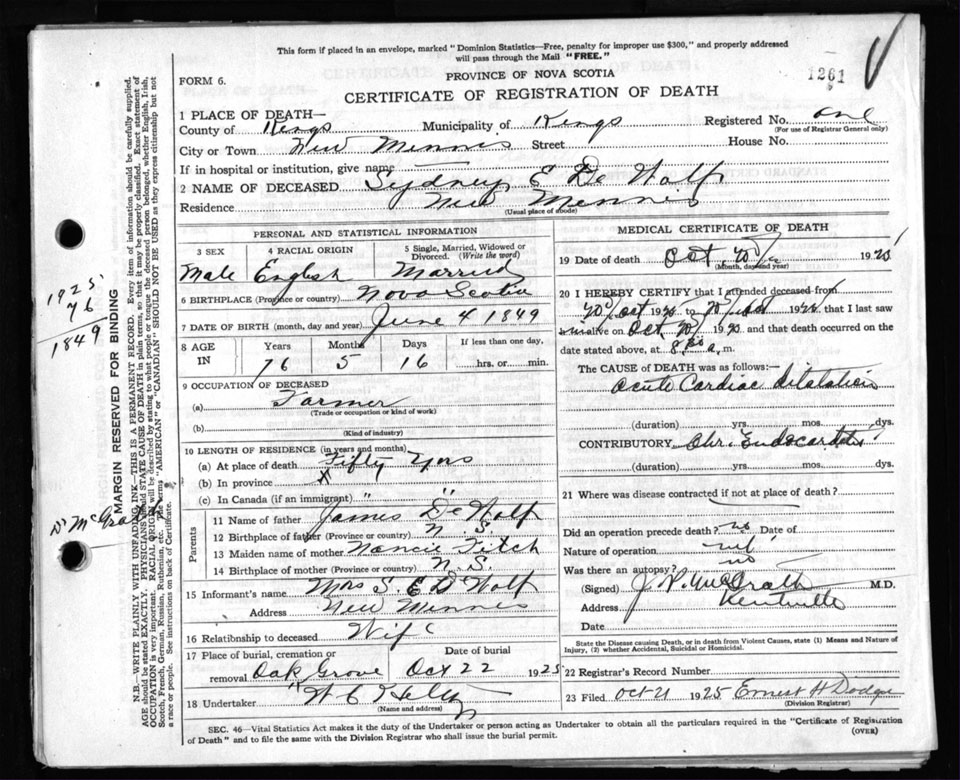 This form if placed in an envelope, marked "Dominion Statistics—Free, penalty for improper use $300," and properly addressed
will pass through the Mail "FREE."
PROVINCE OF NOVA SCOTIA
1261
FORM 6.
CERTIFICATE OF REGISTRATION OF DEATH
1 PLACE OF DEATH—
County of Kings Municipality of Kings Registered No. one
(For use of Registrar General only)
City or Town New Minnis Street House No.
If in hospital or institution, give name
2 NAME OF DECEASED Sydney E De Wolf
Residence New Minnis
(Usual place of abode)
PERSONAL AND STATISTICAL INFORMATION
3 SEX 4 RACIAL ORIGIN 5 Single, Married, Widowed or Divorced. (Write the word)
Male English Married
6 BIRTHPLACE (Province or country) Nova Scotia
7 DATE OF BIRTH (month, day and year) June 4 1849
8 AGE IN Years Months Days If less than one day,
76 5 16 hrs. or min.
9 OCCUPATION OF DECEASED
(a) Farmer
(Trade or occupation or kind of work)
(b)
(Kind of industry)
10 LENGTH OF RESIDENCE (in years and months)
(a) At place of death Fifty Yrs
(b) In province
(c) In Canada (if an immigrant) " "
Parents
11 Name of father James De Wolf
12 Birthplace of father (Province or country) N. S.
13 Maiden name of mother Nancie Fitch
14 Birthplace of mother (Province or country) N. S.
15 Informant's name Mrs S. E D Wolf
Address New Minnis
16 Relatibnship to deceased Wife
17 Place of burial, cremation or removal Oak Grove Date of burial Oct 22 1925
18 Undertaker W C
(Name and address)
MEDICAL CERTIFICATE OF DEATH
19 Date of death Oct. 20 1925
(Month, day and year)
20 I HEREBY CERTIFY that I attended deceased from
20 Oct 1925 to 20 Oct 1925 that I last saw
him alive on Oct 20 1925 and that death occurred on the
date stated above, at 8.30 a. m.
The CAUSE OF DEATH was as follows:—
Acute Cardiac Dilatation
(duration) yrs. mos. dys.
CONTRIBUTORY Chr. Endocarditis
(duration) yrs. mos. dys.
21 Where was disease contracted if not at place of death?
Did an operation precede death? no Date of
Nature of operation nil
Was there an autopsy? no
(Signed) J. P. McGrath M.D.
Address Kentville
Date
State the Disease causing Death, or in death from Violent Causes, state (1) Means and Nature of
Injury, (2) whether Accidental, Suicidal or Homicidal.
22 Registrar's Record Number
23 Filed Oct 21 1925 Ernest H Dodge
(Division Registrar)
SEC. 46—Vital Statistics Act makes it the duty of the Undertaker or person acting as Undertaker to obtain all the particulars required in the "Certificate of Registration
of Death" and to file the same with the Division Registrar who shall issue the burial permit.
(OVER)
1925
76
1849
Dr McGrath
MARGIN RESERVED FOR BINDING
N.B.—WRITE PLAINLY WITH UNFADING INK—THIS IS A PERMANENT RECORD. Every item of information should be carefully supplied.
AGE should be stated EXACTLY. PHYSICIANS should STATE CAUSE OF DEATH in plain terms, so that it may be properly classified. Exact statement of
OCCUPATION is very important. RACIAL ORIGIN will be described by stating to what people or tongue the deceased person belonged, whether English, Irish,
Scotch, French, German, Russian, Ruthenian, etc. The terms "AMERICAN" or "CANADIAN" SHOULD NOT BE USED as they express citizenship but not
a race or people. See instructions on back of Certificate.